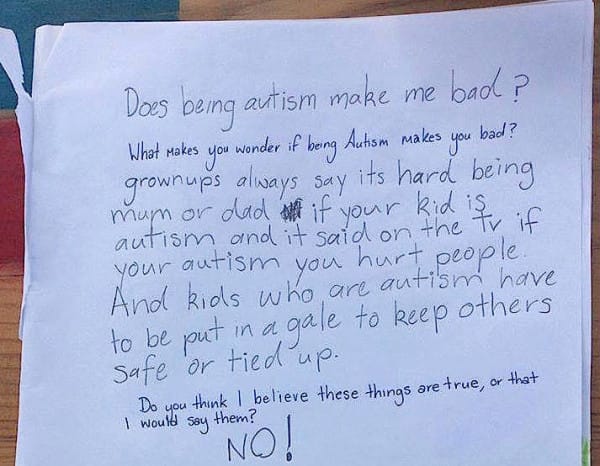 Does being autism make me bad?
What makes you wonder if being Autism makes you bad?
grownups always say its hard being
mum or dad if your kid is
autism and it said on the Tv if
your autism you hurt people.
And kids who are autism have
to be put in a gale to keep others
safe or tied up.
Do you think I believe these things are true, or that
I would say them?
NO!